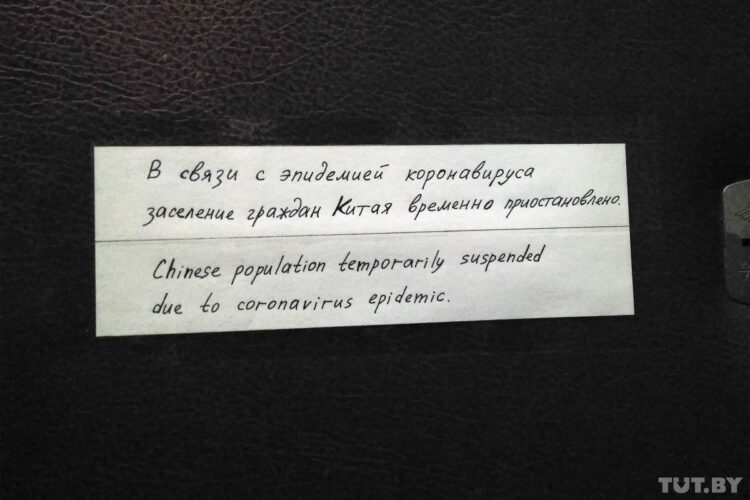 В связи с эпидемией коронавируса
заселение граждан Китая временно приостановлено.
Chinese population temporarily suspended
due to coronavirus epidemic.
TUT.BY